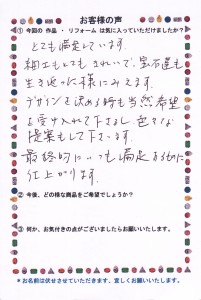 お客様の声
① 今回の 作品 ・ リフォーム は気に入っていただけましたか?
とても満足しています。
細工もとてもきれいで、宝石達も
生き返った様にみえます。
デザインを決める時も当然希望
を受け入れて下さるし 色々な
提案もして下さいます。
最終的にいつも満足する物に
仕上がります。
② 今後、どの様な商品をご希望でしょうか?
③ 何か、お気付きの点がございましたらお願いいたします。
*お名前は伏せさせていただきます、宜しくお願いいたします。